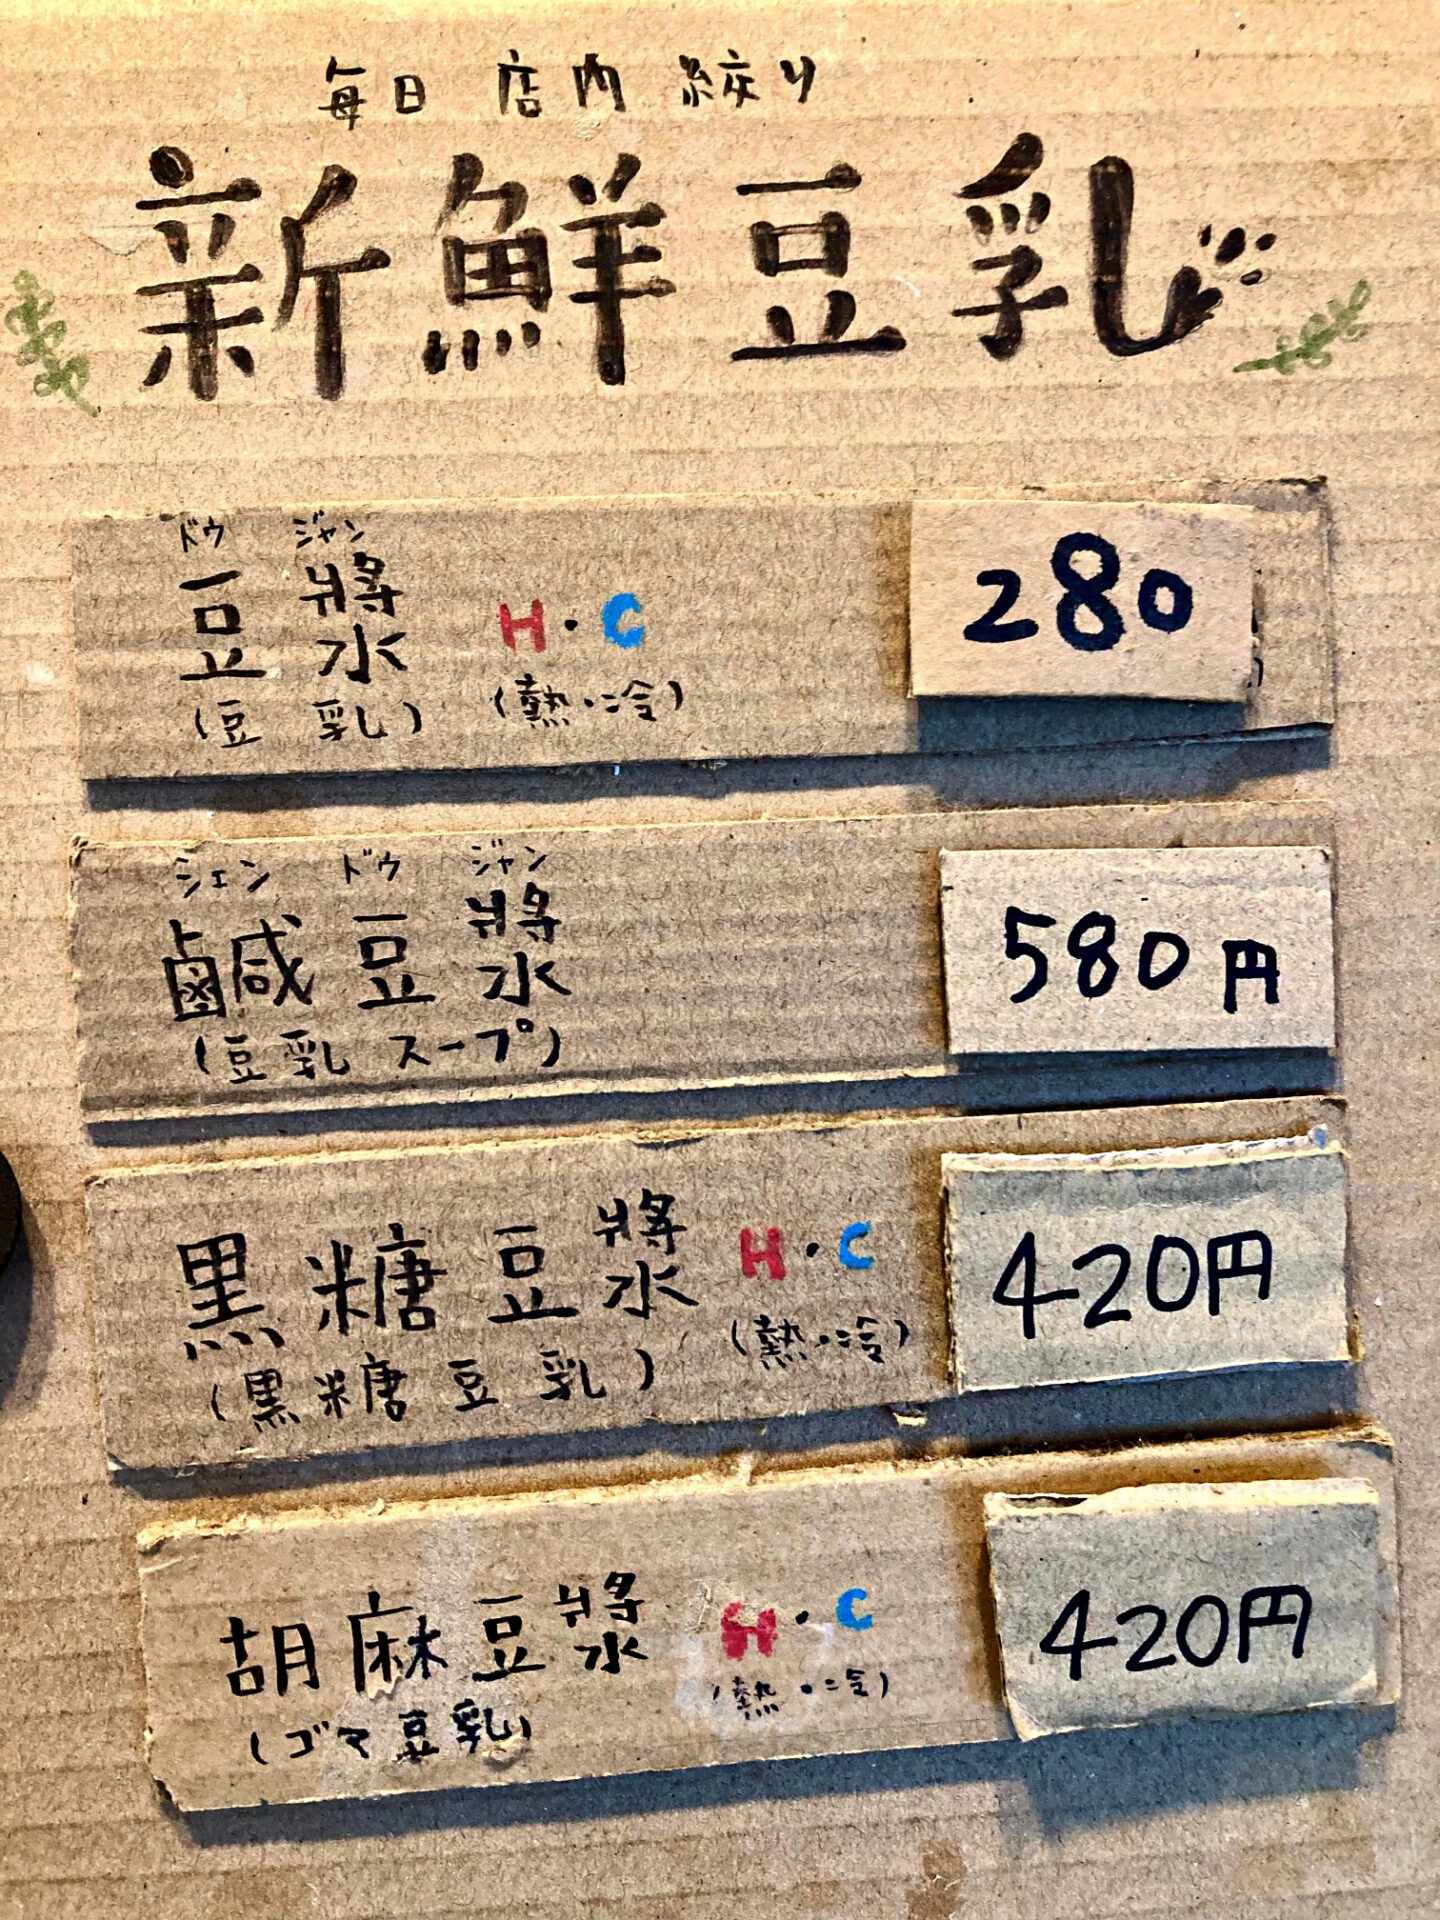 毎日 店内 絞り
新鮮豆乳
ドウ ジャン
豆漿 H・C 280
(豆乳) (熱・冷)
シェン ドウ ジャン
鹹豆漿 580円
(豆乳スープ)
黒糖豆漿 H・C 420円
(黒糖豆乳) (熱・冷)
胡麻豆漿 H・C 420円
(ゴマ豆乳) (熱・冷)